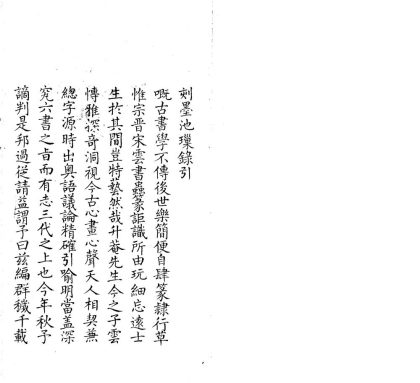 刻墨池璅錄引
嘅古書學不傳後世樂簡便自肆篆隸行草
惟宗晋宋雲書蟲篆詎識所由玩細忘遠士
生扵其間豈特藝然哉升菴先生今之子雲
慱雅探竒洞視今古心畫心聲天人相契兼
總字源時出奥語議論精確引喻明當盖深
究六書之㫖而有志三代之上也今年秋予
謫判是邦過從請益謂予曰兹編群穢千載